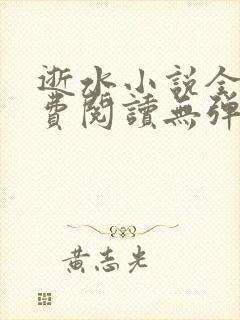 逝水小説全
費閱讀無彈
黃志光